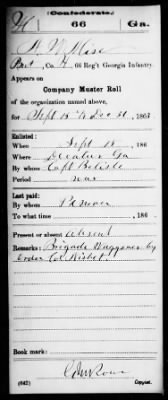 (Confederate.)
H 66 Ga.
Pvt, Co. H, 66 Reg't Georgia Infantry.
Appears on
Company Muster Roll
of the organization named above,
for Sept 15 to Dec 31, 1863
Enlisted:
When Sept 15, 186
Where Decatur Ga
By whom Capt
Period war
Last paid:
By whom
To what time , 186
Present or absent Absent
Remarks: Brigade Waggoner by
order Col Nisbet
Book mark:
(642)